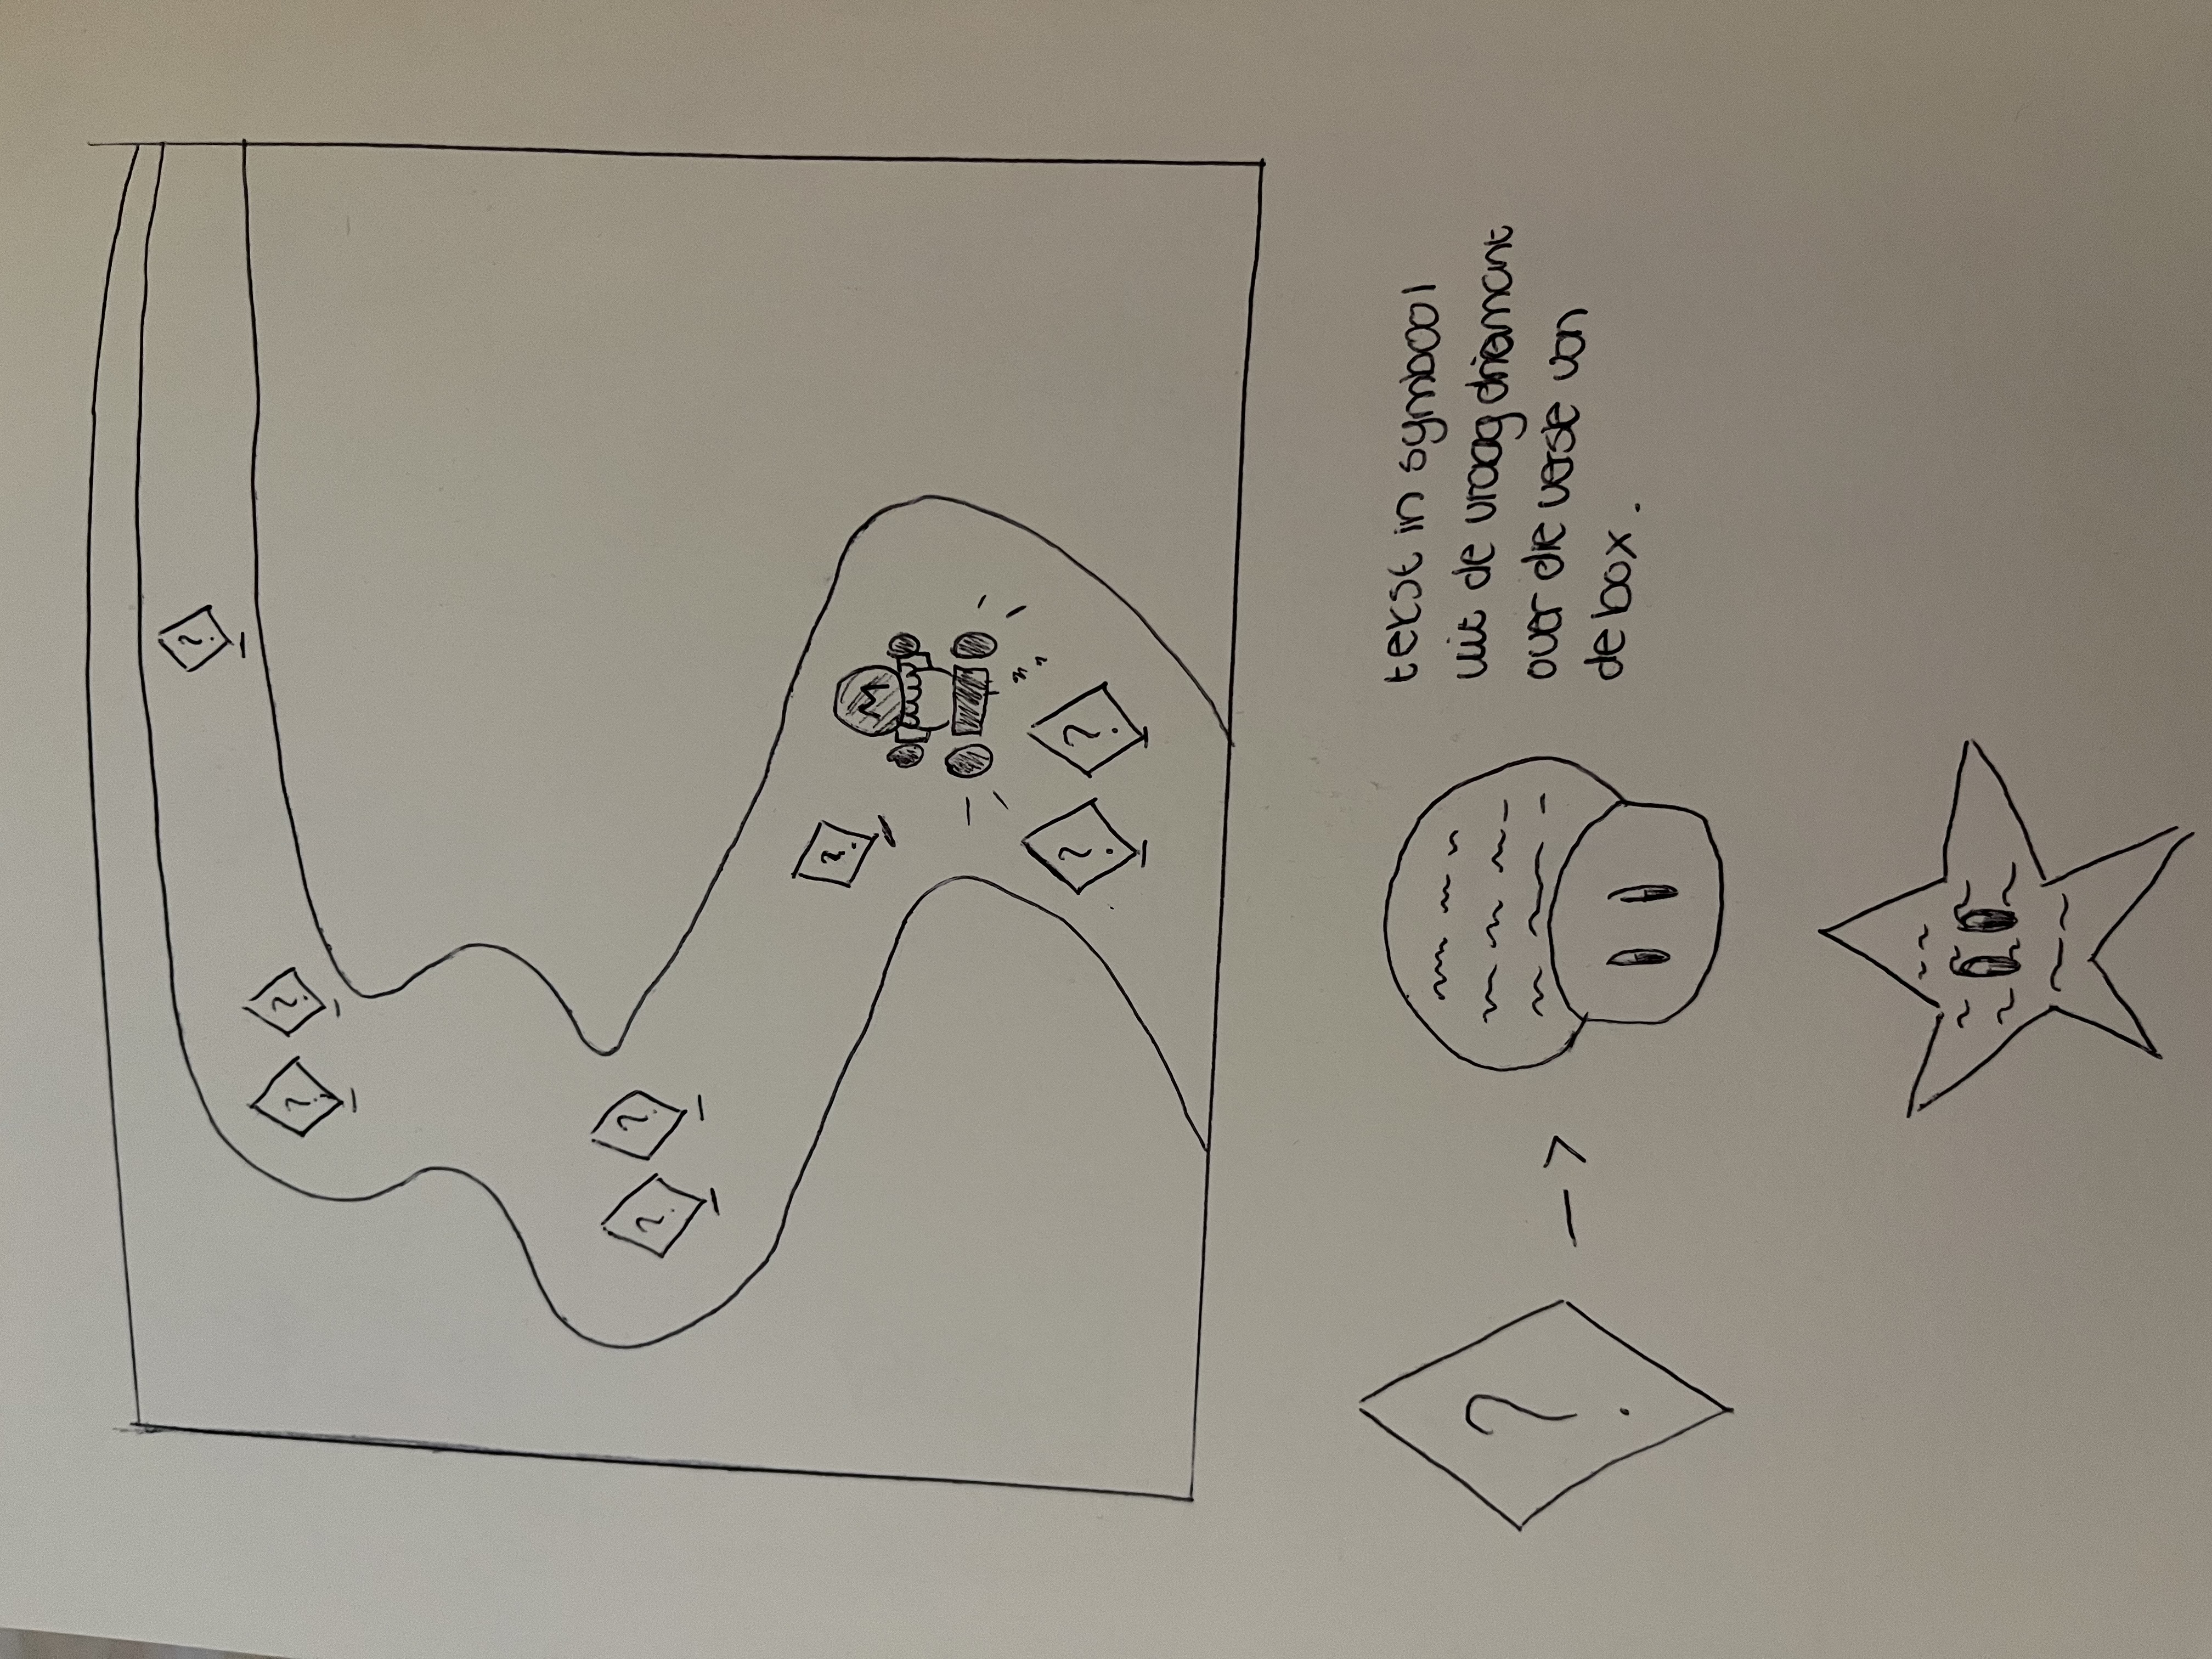 ?
? ?
? ?
?
M
? ?
?
tekst in symbool
uit de vraagdiamant
over die versie van
de box.